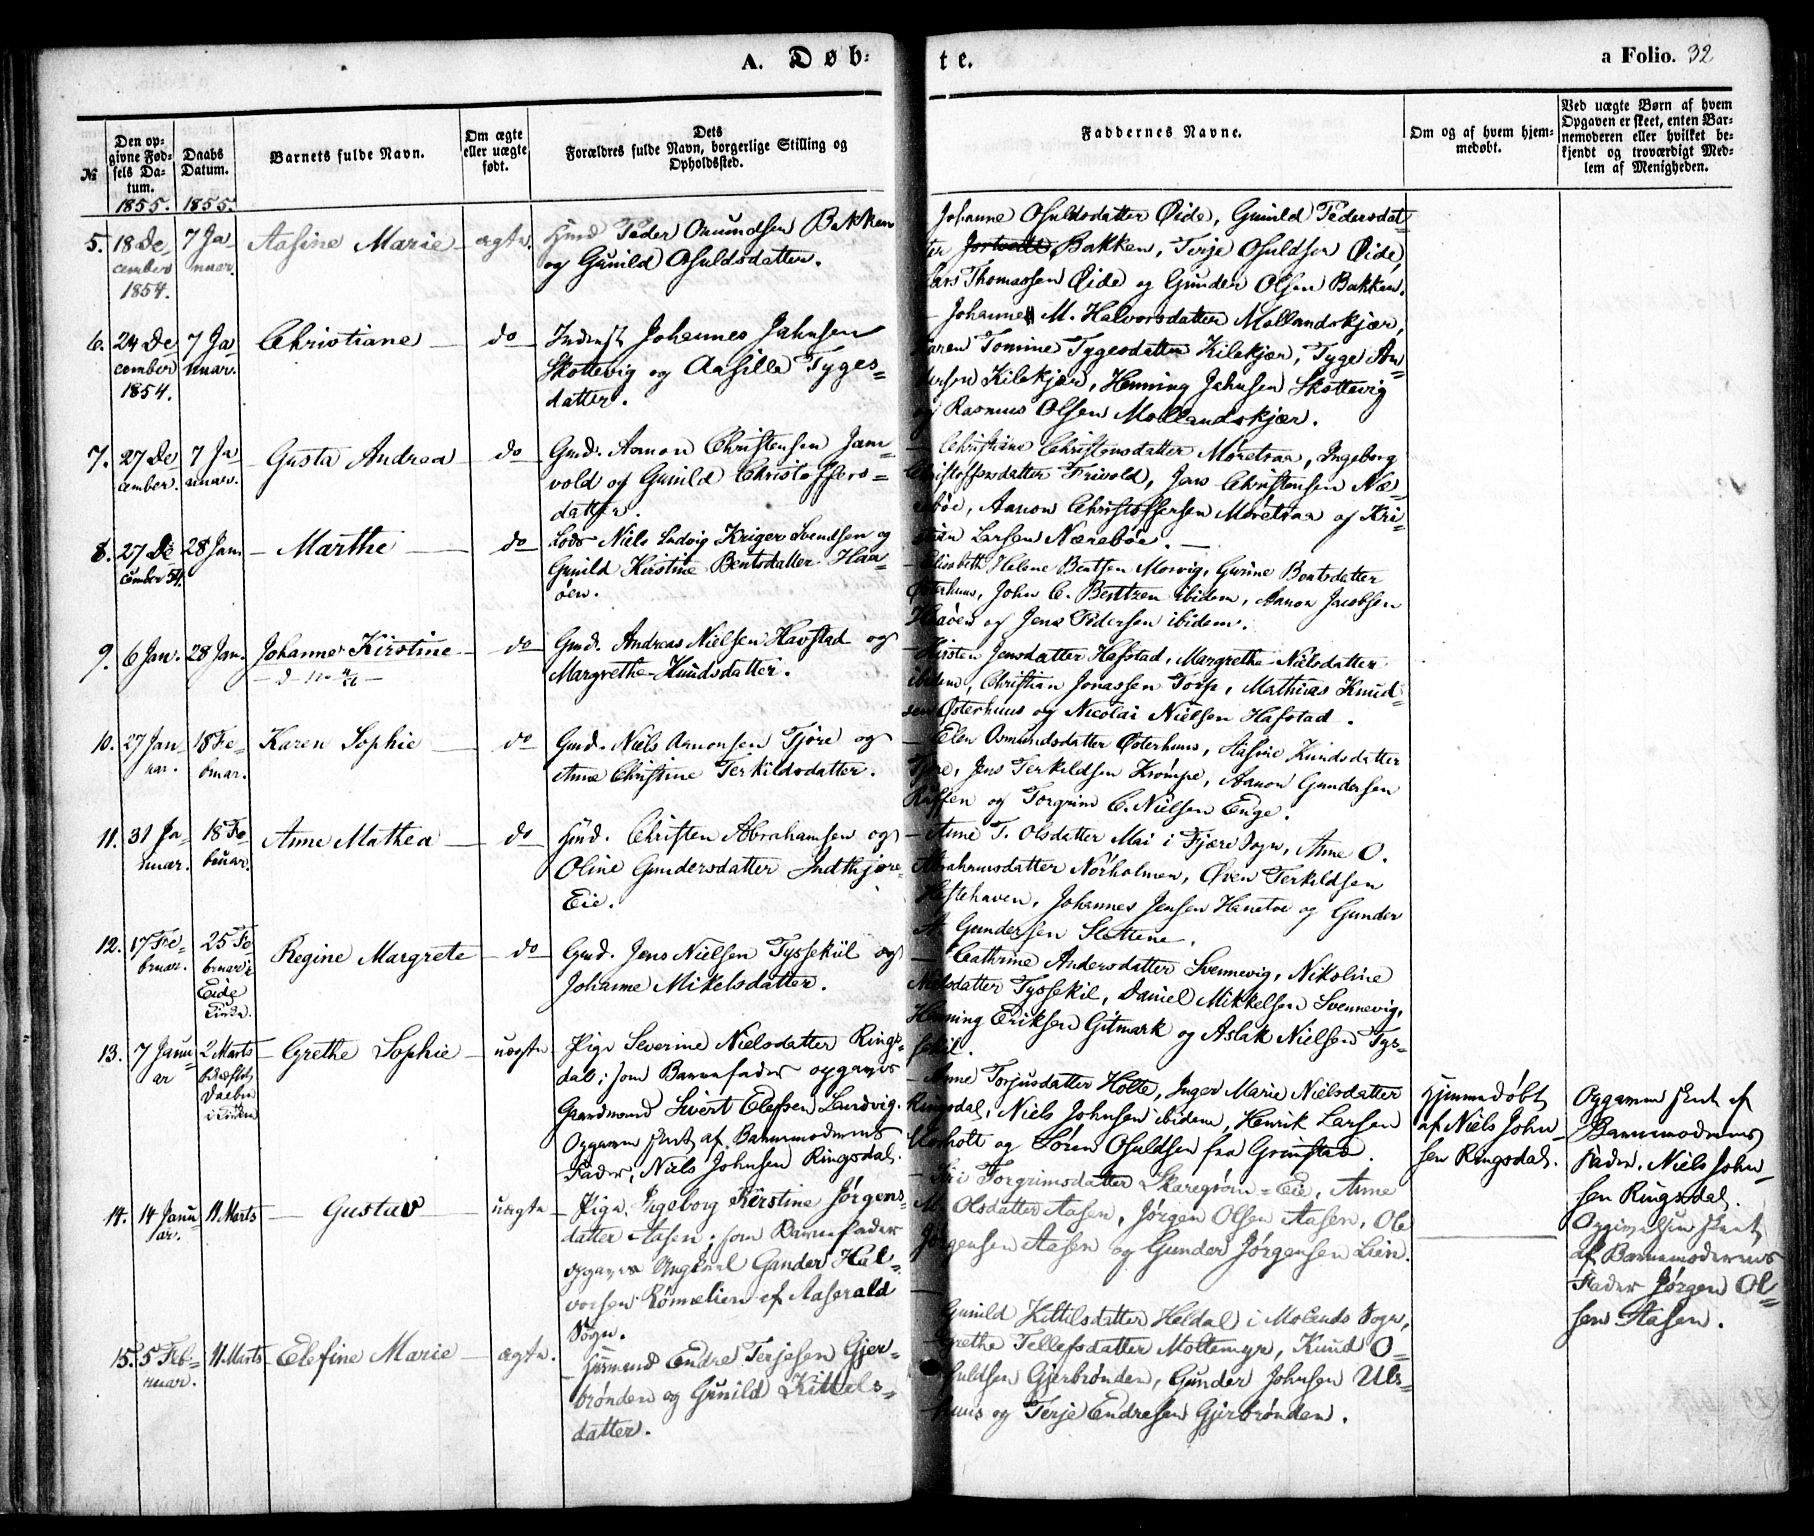 A. Døb:
te.
a Folio. 32
№
Den op-
givne Fød-
sels Da-
tum.
1855.
Daabs
Datum.
1855.
Barnets fulde Navn.
Om ægte
eller uægte
født.
Dets
Forældres fulde Navn, borgerlige Stilling og
Opholdssted.
Faddernes Navne.
Om og af hvem hjem-
medøbt.
Ved uægte Børn af hvem
Opgaven er skeet, enten Bar-
nemoderen eller hvilket be-
kjendt og troværdigt Med-
lem af Menigheden.
5. 18 De
cember
1854.
7 Ja
nuar.
Aasine Marie
ægte.
Huusmd Peder Omundsen Bakken
og Gunild Osuldsdatter.
Johanne Osuldsdatter Øide, Gunild Pedersdat
ter Bakken, Terje Osuldsen Øide,
Lars Thomassen Øide og Gunder Olsen Bakken.
6. 24 De
cember
1854.
7 Ja
nuar.
Christiane
do
Inderst Johannes Jahnsen
Skottevig og Aasille Tyges=
datter.
Johanne M. Halvorsdatter Mollandskjær,
Karen Tomine Tygesdatter Kilekjær, Tyge An
dersen Kilekjær, Henning Jahnsen Skottevig
og Rasmus Olsen Mollandskjær.
7. 27 De
cember.
7 Ja
nuar.
Gusta Andrea
do
Gmd. Aamon Christensen Jam
vold og Gunild Christoffers=
datter.
Christiane Christensdatter Moretraa, Ingeborg
Christoffersdatter Frivold, Jens Christensen Næ=
rebøe, Aanon Christoffersen Moretraa og Kri=
stian Larsen Nærebøe.
8. 27 De
cember 54.
28 Jan
Marthe
do
Lods Niels Ludvig Kriger Svendsen og
Gunild Kirstine Bentsdatter Haa
øen.
Elisabeth Helene Bentsen Morvig, Gurine Bentsdatter
Østerhuus, John C. Bentzen ibidem, Aanon Jacobsen
Haaøen og Jens Pedersen ibidem.
9. 6 Jan.
28 Jan.
Johanne Kirstine
do
Gmd. Andreas Nielsen Havstad og
Margrethe Knudsdatter.
Kirsten Jensdatter Hafstad, Margrethe Nielsdatter
ibidem, Christian Jonassen Torp, Mathias Knud
sen Østerhuus og Nicolai Nielsen Hafstad.
10. 27 Jan
uar.
18 Fe=
bruar.
Karen Sophie
do
Gmd. Niels Aanonsen Tjøre og
Anne Christine Terkildsdatter.
Elen Osmundsdatter Østerhuus, Aasine Knudsdatter
Tjøre, Jens Terkildsen Krømpe, Aanon Gundersen
og Torgrim C. Nielsen Enge.
11. 31 Ja
nuar.
18 Fe=
bruar.
Anne Mathea
do
Hmd. Christen Abrahamsen og
Oline Gundersdatter Indthjøre=
Eie.
Anne T. Olsdatter Mai i Fjære Sogn, Anne O.
Abrahamsdatter Nørholmen, Øven Terkildsen
Hestehaven, Johannes Jensen Hanetoe og Gunder
A. Gundersen Slettene.
12. 17 Fe=
bruar.
25 Fe
bruar i
Eide
Kirke.
Regine Margrete
do
Gmd. Jens Nielsen Tyssekiil og
Johanne Mikelsdatter.
Cathrine Andersdatter Svennevig, Nikoline
Nielsdatter Tyssekil, Daniel Mikkelsen Svennevig,
Henning Eriksen Gitmark og Aslak Nielsen Tys=
sekil.
13. 7 Janu
ar
2 Marts
Daaben
i Kirken
Grethe Sophie
uægte
Pige Severine Nielsdatter Rings=
dal; som Barnefader opgaves
Grandmand Sivert Elefsen Lundvig.
Opgaven skeet af Barnemoderens
Fader, Niels Johnsen Ringsdal.
Anne Torjusdatter Holte, Inger Marie Nielsdatter
Ringsdal, Niels Johnsen ibidem, Henrik Larsen
og Søren Osuldsen fra Grimstad.
Hjemmedøbt
af Niels John
sen Ringsdal.
Opgaven skeet af
Barnemoderens
Fader, Niels John
sen Ringsdal.
14. 14 Janu
ar.
11 Marts
Gustav
uægte
Pige Ingeborg Kirstine Jørgens
datter Aasen; som Barnefader
opgaves Ungkarl Gunder Hal=
vorsen Rømelien af Aaserald
Sogn.
Siri Torgrimsdatter Skaregrøm=Eie, Anne
M. Olsdatter Aasen, Jørgen Olsen Aasen, Ole
Jørgensen Aasen og Gunder Jørgensen Lien.
Opgivelsen skeet
af Barnemoderens
Fader Jørgen Ol=
sen Aasen.
15. 5 Feb=
ruar.
11 Marts
Elefine Marie
ægte.
Huusmand Endre Terjesen Gjer=
brønden og Gunild Kittels=
datter.
Gunild Kittilsdatter Heldal i Molands Sogn,
Grethe Tellefsdatter Moltemyr, Knud O=
suldsen Gjerbrønden, Gunder Johnsen Uls=
huus og Terje Endresen Gjerbrønden.